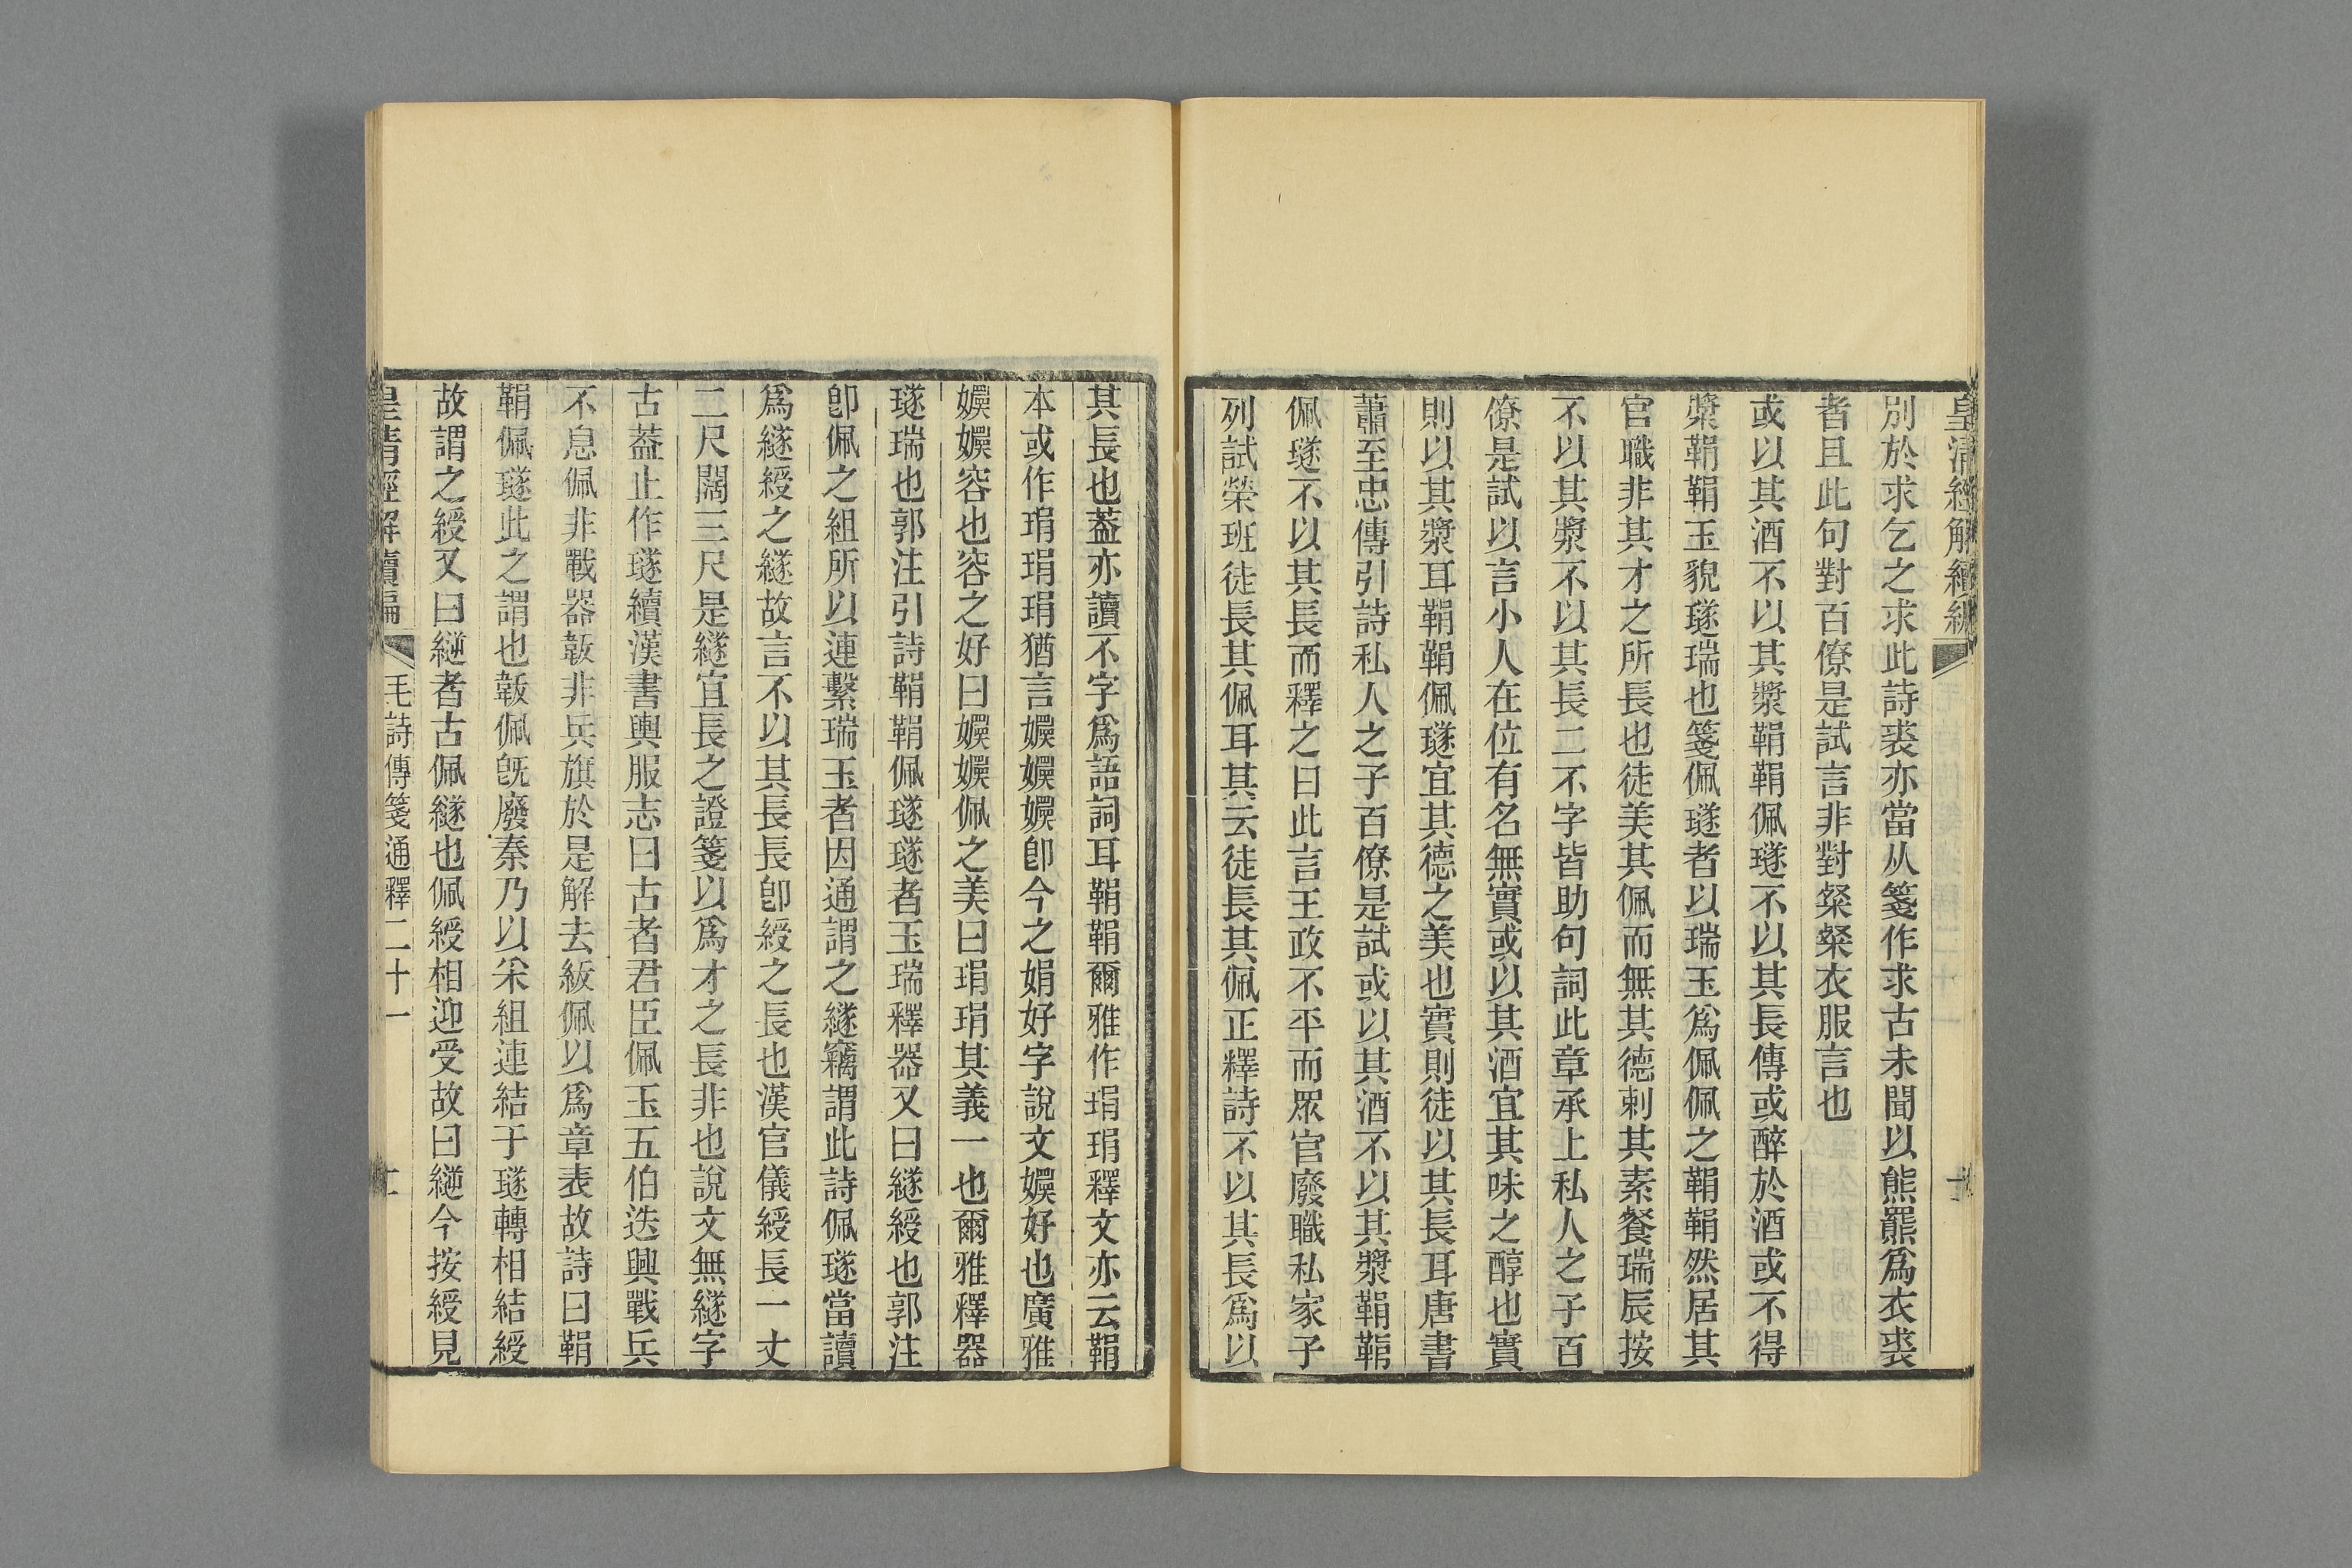 皇清經解續編
別於求乞之求此詩裘亦當从箋作求古未聞以熊羆爲衣裘
者且此句對百僚是試言非對粲粲衣服言也
或以其酒不以其漿鞙鞙佩璲不以其長傳或醉於酒或不得
漿鞙鞙玉貌璲瑞也箋佩璲者以瑞玉爲佩佩之鞙鞙然居其
官職非其才之所長也徒美其佩而無其德刺其素餐瑞辰按
不以其漿不以其長二不字皆助句詞此章承上私人之子百
僚是試以言小人在位有名無實或以其酒宜其味之醇也實
則以其漿耳鞙鞙佩璲宜其德之美也實則徒以其長耳唐書
蕭至忠傳引詩私人之子百僚是試或以其酒不以其漿鞙鞙
佩璲不以其長而釋之曰此言王政不平而眾官廢職私家子
列試榮班徒長其佩耳其云徒長其佩正釋詩不以其長爲以
其長也葢亦讀不字爲語詞耳鞙鞙爾雅作琄琄釋文亦云鞙
本或作琄琄琄猶言嬽嬽嬽卽今之娟好字說文嬽好也廣雅
嬽嬽容也容之好曰嬽嬽佩之美曰琄琄其義一也爾雅釋器
璲瑞也郭注引詩鞙鞙佩璲璲者玉瑞釋器又曰繸綬也郭注
卽佩之組所以連繫瑞玉者因通謂之繸竊謂此詩佩璲當讀
爲繸綬之繸故言不以其長長卽綬之長也漢官儀綬長一丈
二尺闊三尺是繸宜長之證箋以爲才之長非也說文無繸字
古葢止作璲續漢書輿服志曰古者君臣佩玉五伯迭興戰兵
不息佩非戰器韍非兵旗於是解去紱佩以爲章表故詩曰鞙
鞙佩璲此之謂也韍佩旣廢秦乃以采組連結于璲轉相結綬
故謂之綬又曰縌者古佩繸也佩綬相迎受故曰縌今按綬見
皇清經解續編 毛詩傳箋通釋二十一